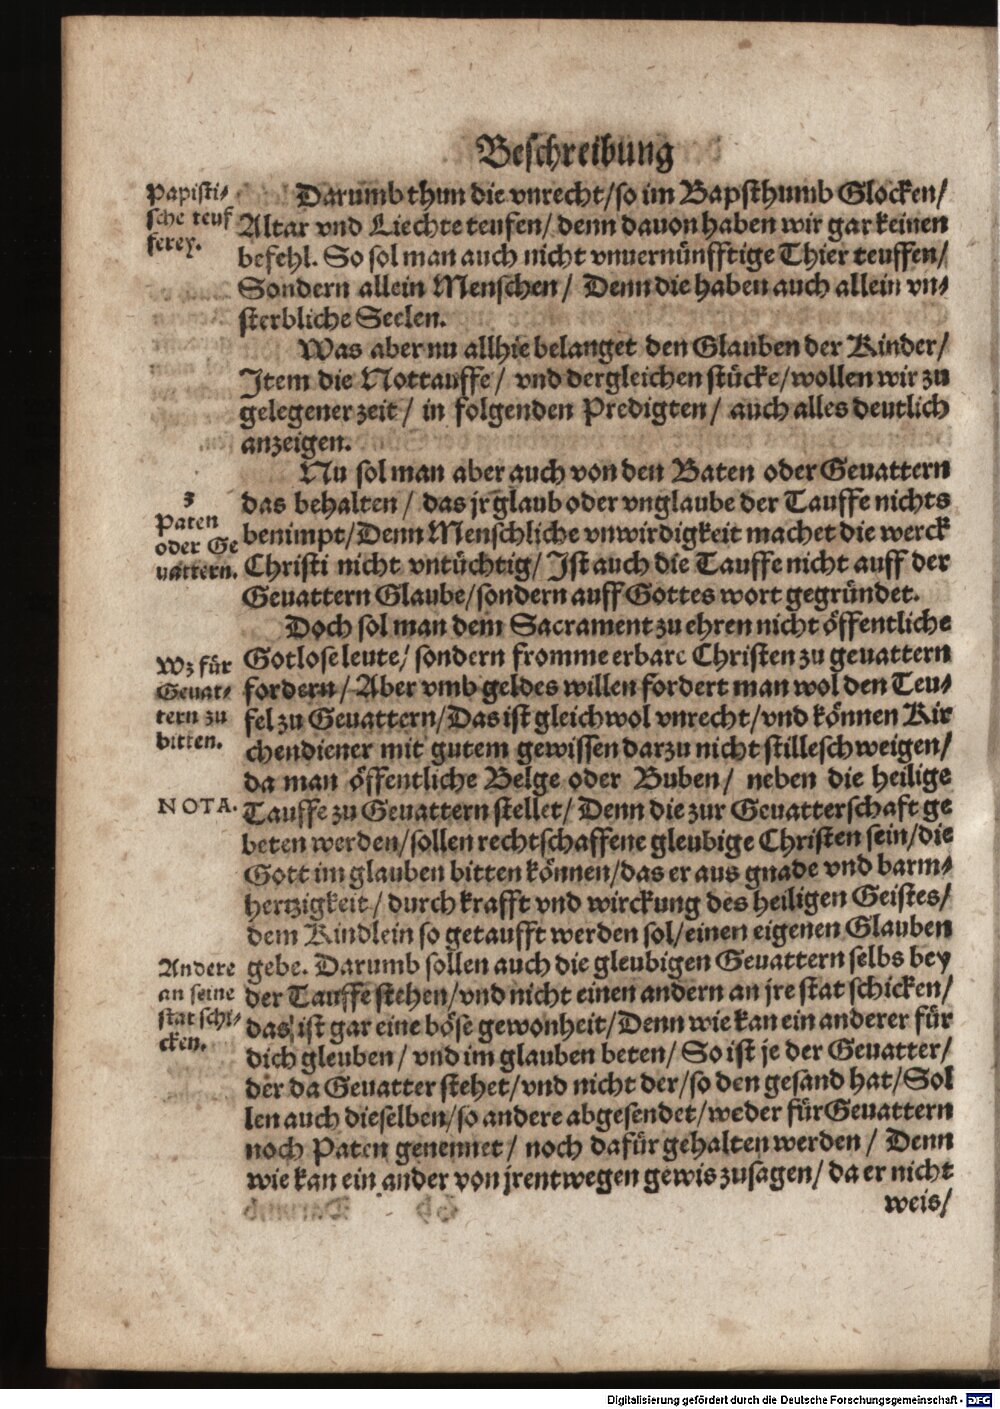 Beschreibung
Papisti⸗
sche teuf
ferey.
Darumb thun die vnrecht/so im Bapsthumb Glocken/
Altar vnd Liechte teufen/ denn dauon haben wir gar keinen
befehl. So sol man auch nicht vnuernünfftige Thier teuffen/
Sondern allein Menschen/ Denn die haben auch allein vn⸗
sterbliche Seelen.
Was aber nu allhie belanget den Glauben der Kinder/
Item die Nottauffe/ vnd dergleichen stücke/wollen wir zu
gelegener zeit/ in folgenden Predigten/ auch alles deutlich
anzeigen.
3
Paten
oder Ge
uattern.
Nu sol man aber auch von den Baten oder Geuattern
das behalten/ das jr glaub oder vnglaube der Tauffe nichts
benimpt/Denn Menschliche vnwirdigkeit machet die werck
Christi nicht vntüchtig/ Ist auch die Tauffe nicht auff der
Geuattern Glaube/sondern auff Gottes wort gegründet.
Wz für
Geuat⸗
tern zu
bitten.
NOTA.
Doch sol man dem Sacrament zu ehren nicht öffentliche
Gotlose leute/ sondern fromme erbare Christen zu geuattern
fordern/ Aber vmb geldes willen fordert man wol den Teu⸗
fel zu Geuattern/Das ist gleichwol vnrecht/vnd können Kir
chendiener mit gutem gewissen darzu nicht stilleschweigen/
da man öffentliche Belge oder Buben/ neben die heilige
Tauffe zu Geuattern stellet/ Denn die zur Geuatterschaft ge
beten werden/sollen rechtschaffene gleubige Christen sein/die
Gott im glauben bitten können/das er aus gnade vnd barm⸗
hertzigkeit/ durch krafft vnd wirckung des heiligen Geistes/
dem Kindlein so getaufft werden sol/einen eigenen Glauben
gebe. Darumb sollen auch die gleubigen Geuattern selbs bey
der Tauffe stehen/vnd nicht einen andern an jre stat schicken/
das ist gar eine böse gewonheit/Denn wie kan ein anderer für
dich gleuben/ vnd im glauben beten/ So ist je der Geuatter/
der da Geuatter stehet/vnd nicht der/so den gesand hat/Sol
len auch dieselben/so andere abgesendet/weder für Geuattern
noch Paten genennet/ noch dafür gehalten werden/ Denn
wie kan ein ander von jrentwegen gewis zusagen/ da er nicht
Andere
an seine
stat schi⸗
cken.
weis/
Digitalisierung gefördert durch die Deutsche Forschungsgemeinschaft - DFG